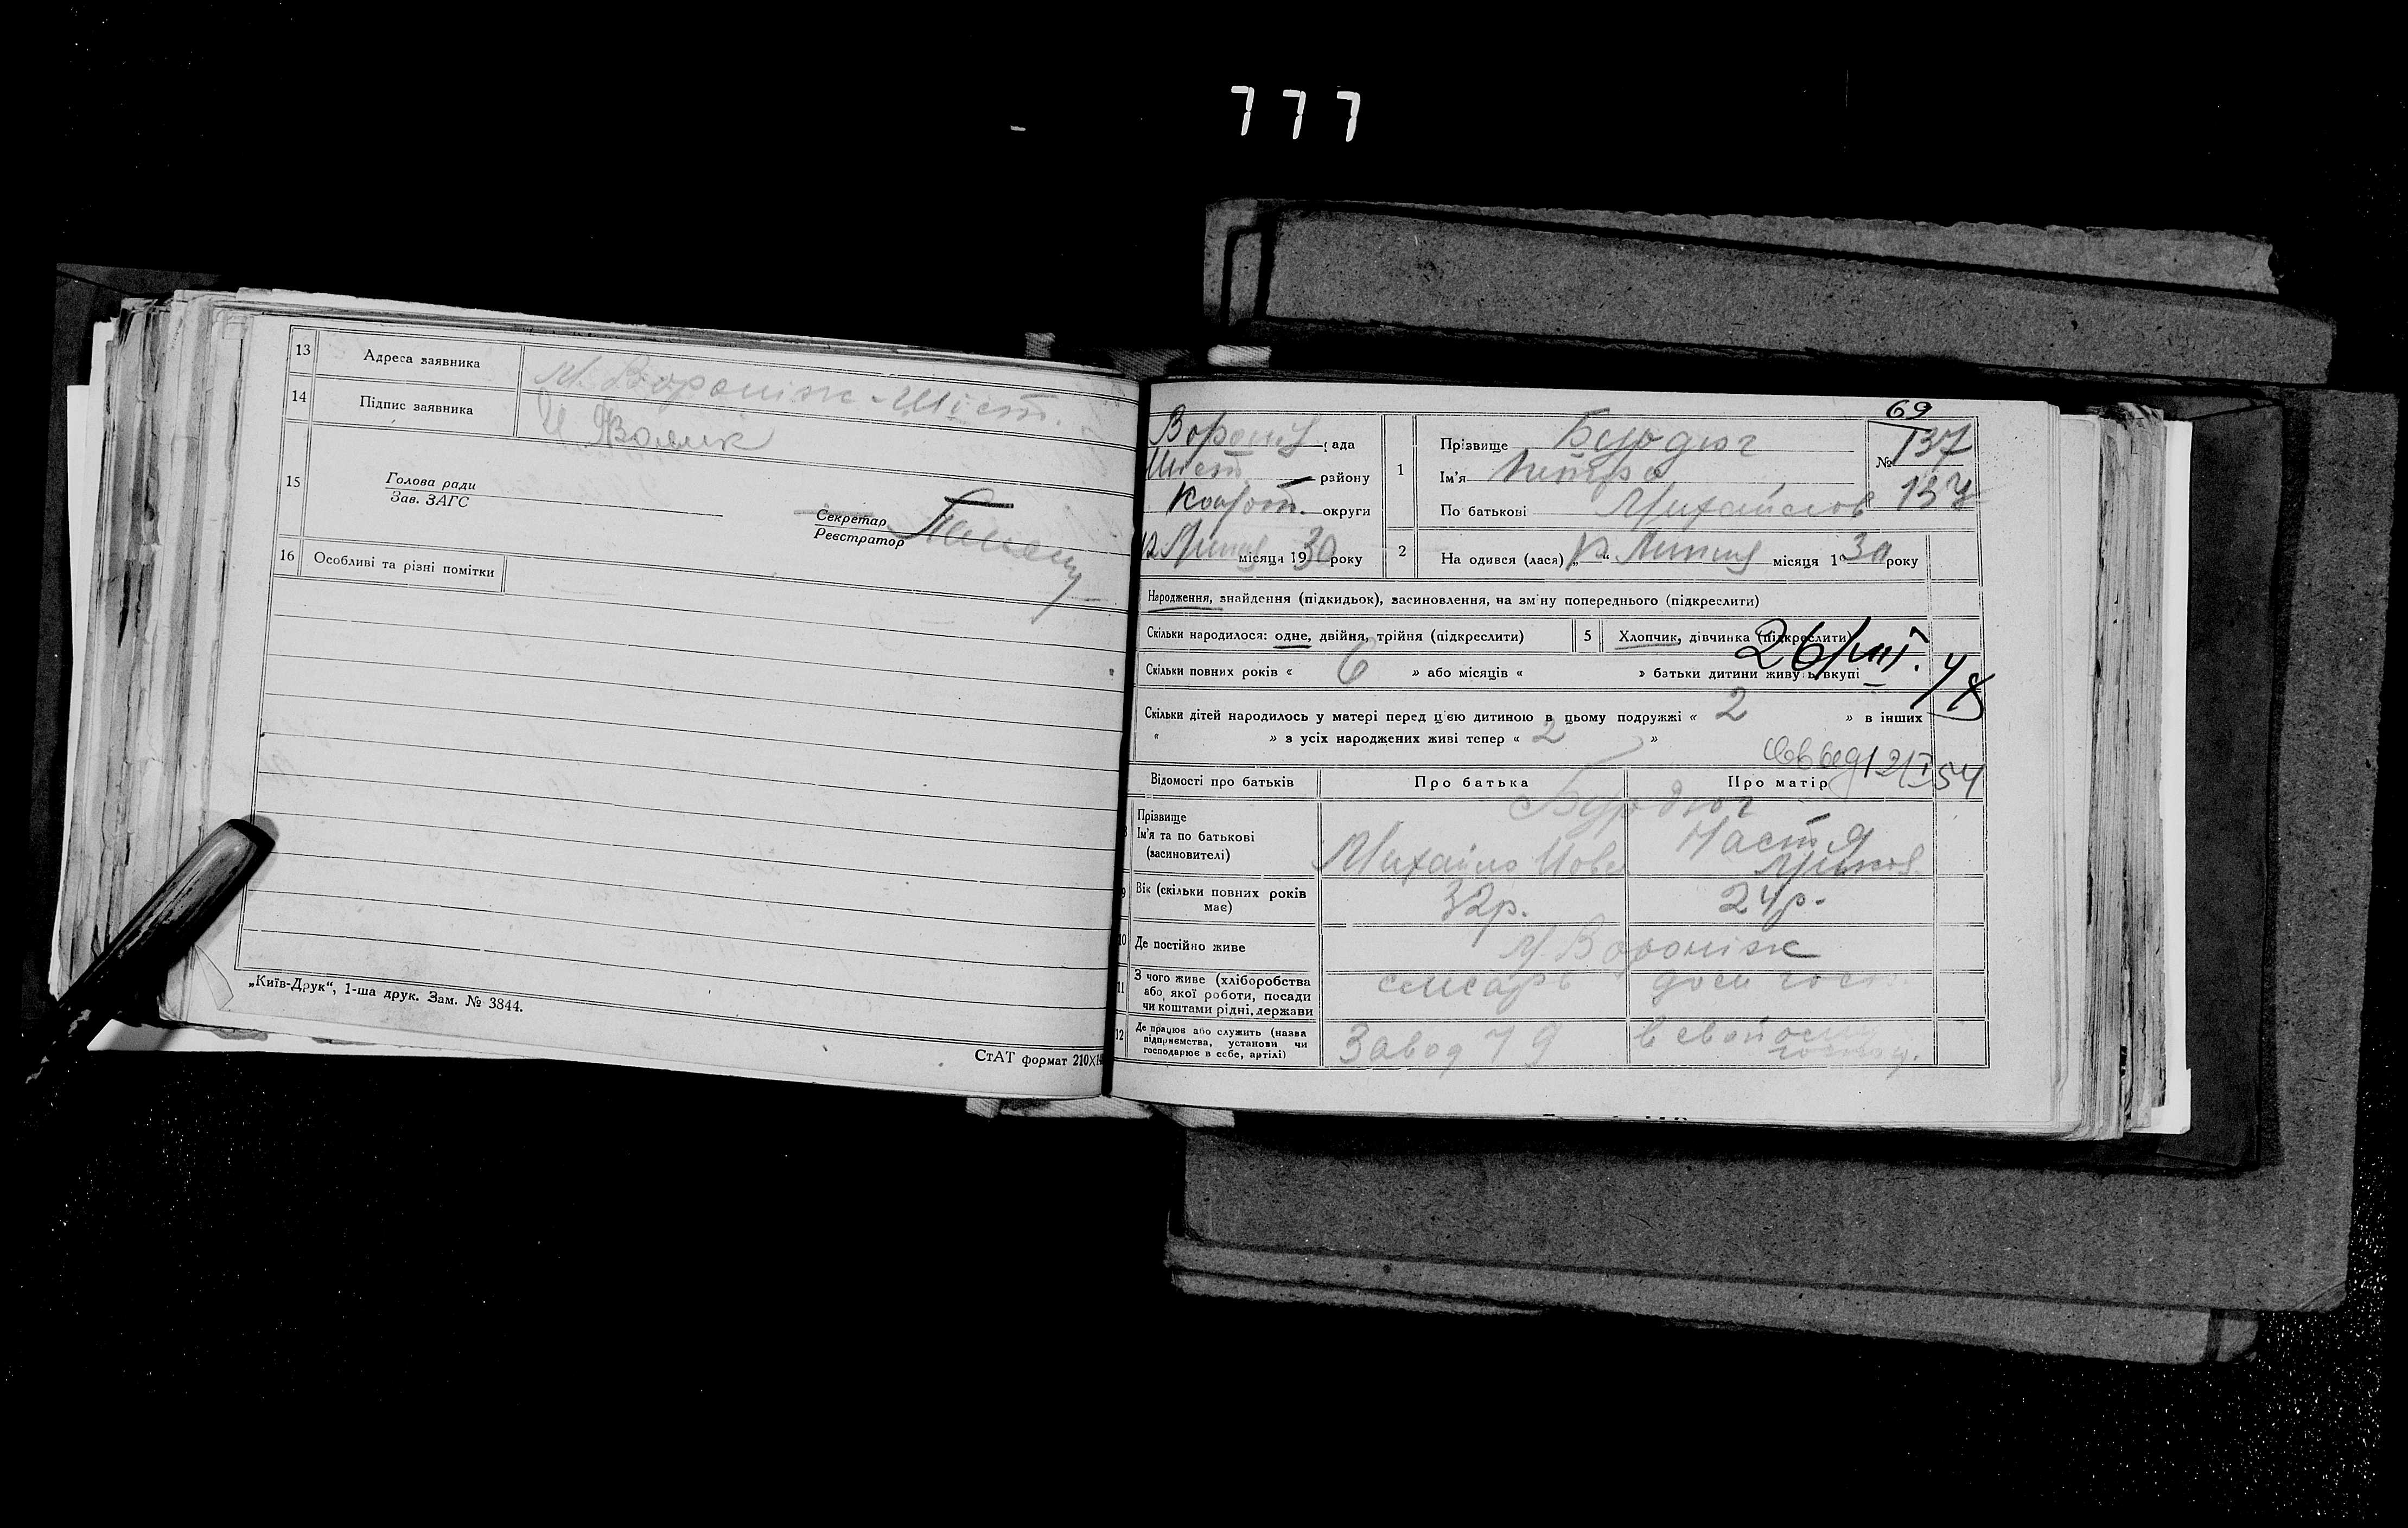 777
13 Адреса заявника М. Вороніж - Шіст.
14 Підпис заявника
15 Голова ради
Зав. ЗАГС
Секретар
Реєстратор
16 Особливі та різні помітки
„Київ-Друк“, 1-ша друк. Зам. № 3844.
СтАТ формат 210×14
69
рада
Шіст району
Конот. округи
12 Липня місяця 1930 року
1 Прізвище
Ім'я Петро
По батькові Михайлов
№ 137
137
2 На одився (лася) „12“ Липня місяця 1930 року
Народження, знайдення (підкидьок), засиновлення, на зміну попереднього (підкреслити)
Скільки народилося: одне, двійня, трійня (підкреслити) 5 Хлопчик, дівчинка (підкреслити)
26/VIII.
Скільки повних років « 6 » або місяців « » батьки дитини живуть вкупі
Скільки дітей народилось у матері перед цією дитиною в цьому подружжі « 2 » в інших
« » з усіх народжених живі тепер « 2 »
54
Відомості про батьків Про батька Про матір
Прізвище
Ім'я та по батькові
(засиновителі)
Михайло Настя
9 Вік (скільки повних років має) 32р. 24р.
10 Де постійно живе М. Вороніж
11 З чого живе (хліборобства або, якої роботи, посади чи коштами рідні, держави слисарь дом госп.
12 Де працює або служить (назва підприємства, установи чи господарює в себе, артілі) Завод в своїом